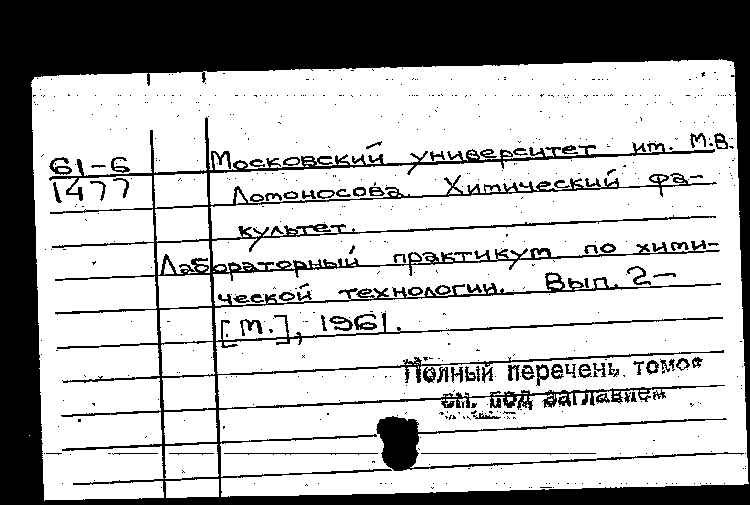 61-6
1477
Московский университет им. М.В.
Ломоносова. Химический фа-
культет.
Лабораторный практикум по хими-
ческой технологии. Вып. 2-
[М.], 1961.
Полный перечень томов
см. под заглавием